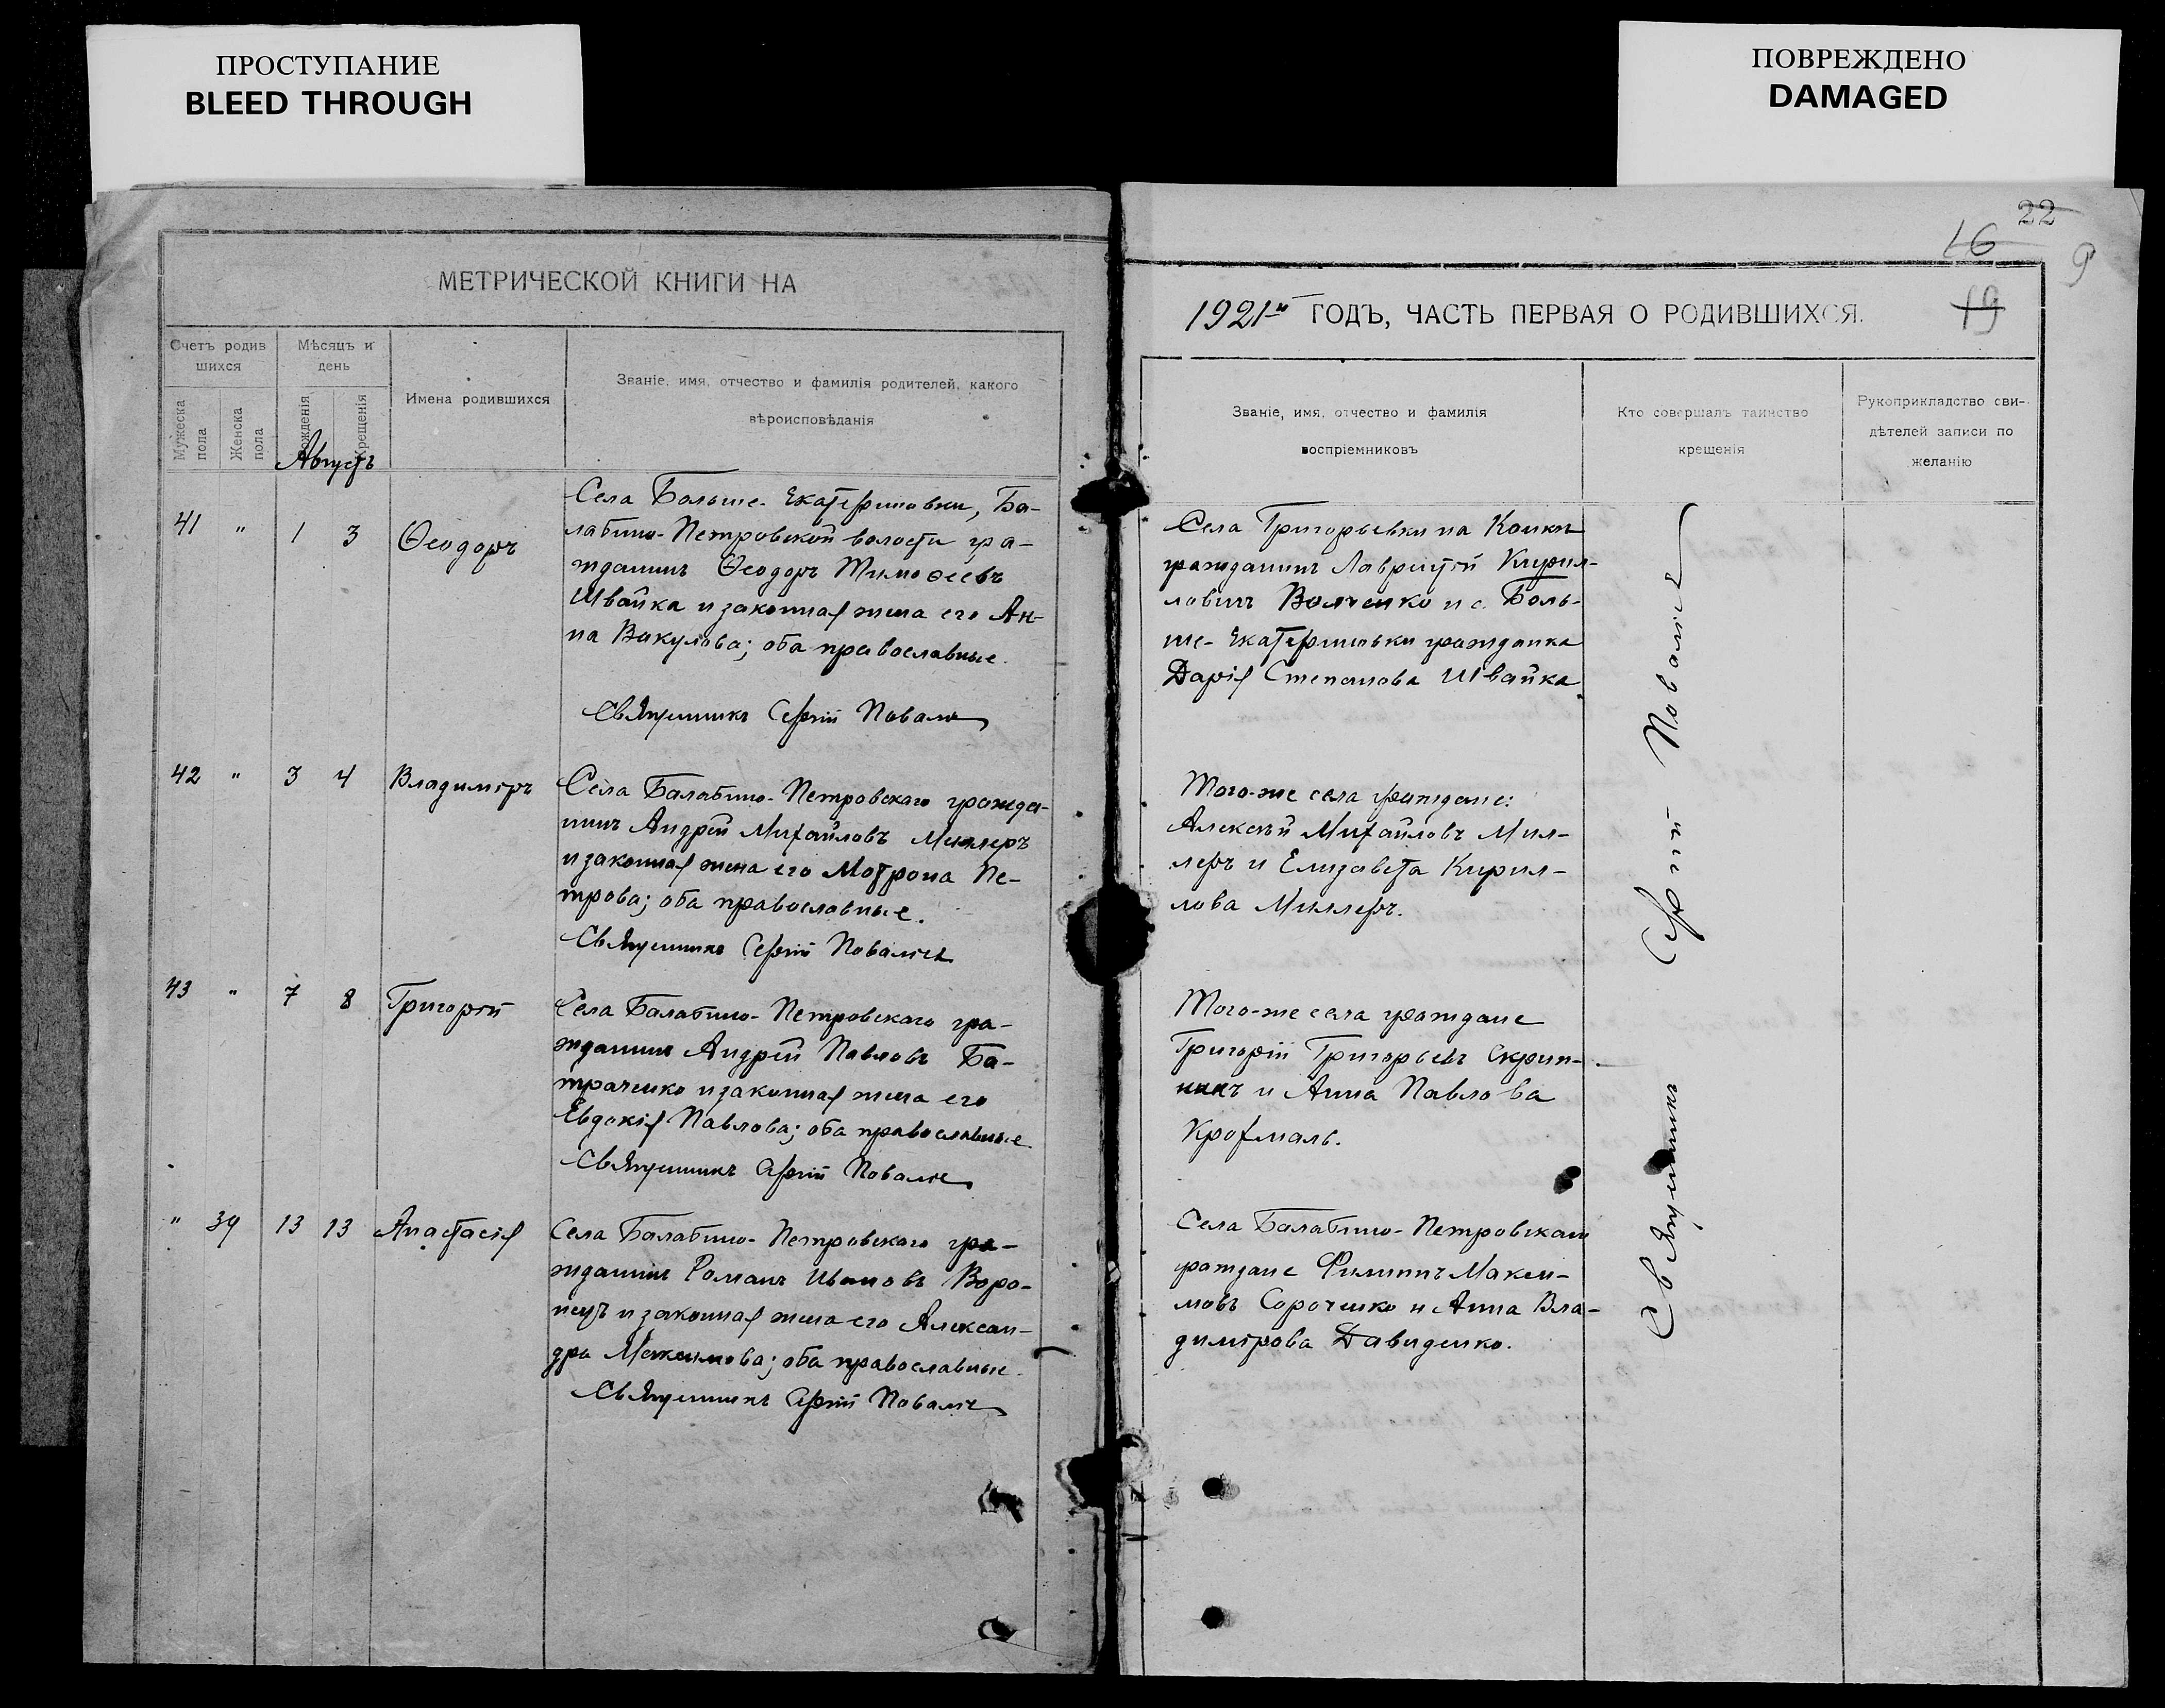 ПРОСТУПАНИЕ
BLEED THROUGH
ПОВРЕЖДЕНО
DAMAGED
22
16
9
19
МЕТРИЧЕСКОЙ КНИГИ НА
1921-й ГОДЪ, ЧАСТЬ ПЕРВАЯ О РОДИВШИХСЯ.
Счетъ родив
шихся
Мѣсяцъ и
день
Мужеска
пола
Женска
пола
рожденія
Крещенія
Имена родившихся
Званіе, имя, отчество и фамилія родителей, какого
вѣроисповѣданія
Званіе, имя, отчество и фамилія
воспріемниковъ
Кто совершалъ таинство
крещенія
Рукоприкладство сви-
дѣтелей записи по
желанію
Августъ
41 " 1 3 Ѳеодоръ
Села Больше-Екатериновки, Ба-
лабино-Петровской волости гра-
жданинъ Ѳеодоръ Тимоѳеевъ
Швайка и законная жена его Ан-
на Вакулова; оба православные.
Священникъ Сергій
Села Григорьевки на Конкѣ
гражданинъ Лаврентій Кирил-
ловичъ Волченко и с. Боль-
ше-Екатериновки гражданка
Дарія Степанова Швайка
42 " 3 4 Владиміръ
Села Балабино-Петровскаго гражда-
нинъ Андрей Михайловъ Миллеръ
и законная жена его Матрона Пе-
трова; оба православные.
Священникъ Сергій
Того-же села граждане:
Алексѣй Михайловъ Мил-
леръ и Елизавета Кирил-
лова Миллеръ.
43 " 7 8 Григорій
Села Балабино-Петровскаго гра-
жданинъ Андрей Павловъ Ба-
траченко и законная жена его
Евдокія Павлова; оба православные
Священникъ Сергій
Того-же села граждане
Григорій Григорьевъ Скрип-
никъ и Анна Павлова
Крохмаль.
" 39 13 13 Анастасія
Села Балабино-Петровскаго гра-
жданинъ Романъ Ивановъ Воро-
нецъ и законная жена его Алексан-
дра Максимова; оба православные.
Священникъ Сергій
Села Балабино-Петровскаго
граждане Филиппъ Макси-
мовъ Сороченко и Анна Вла-
димірова Давиденко.
Священникъ Сергій